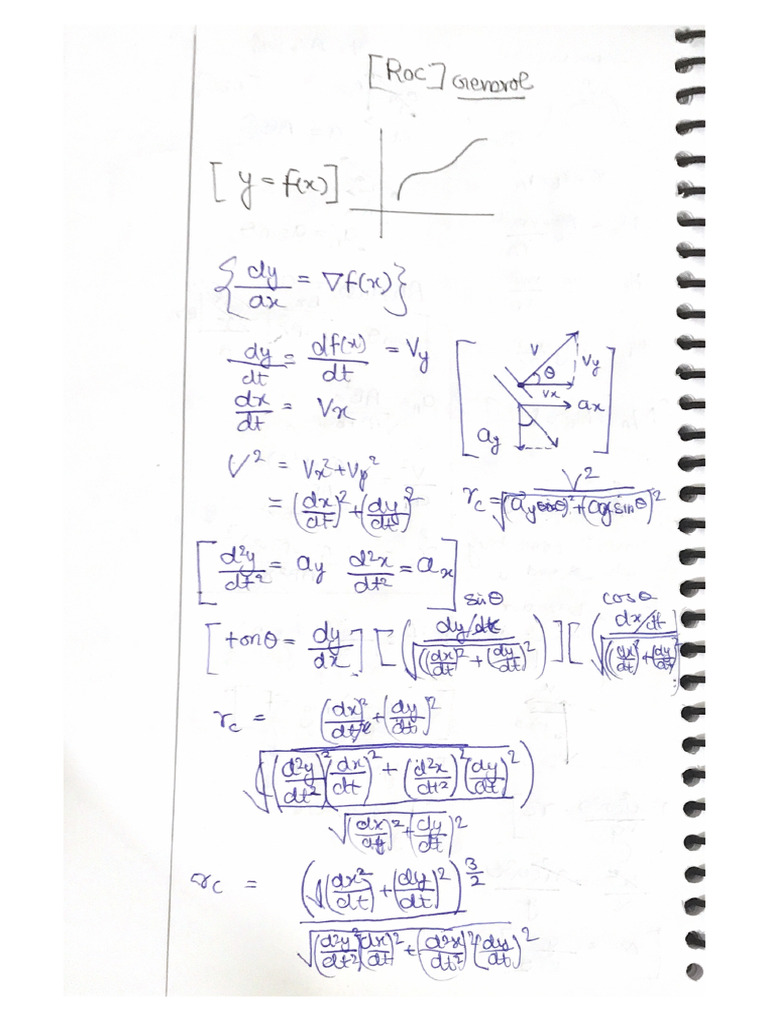 [Roc] General
[y = f(x)]
{dy/dx = ∇f(x)}
dy/dt = df(x)/dt = Vy
dx/dt = Vx
V θ Vy Vx ax ay
V² = Vx² + Vy²
= (dx/dt)² + (dy/dt)²
rc = V²/√((ay cosθ)² + (ax sinθ)²)
[d²y/dt² = ay d²x/dt² = ax]
sinθ cosθ
[tanθ = dy/dx] [(dy/dt/√((dx/dt)² + (dy/dt)²))] [(dx/dt/√((dx/dt)² + (dy/dt)²))]
rc = (dx/dt)² + (dy/dt)²
√((d²y/dt²)² (dx/dt)² + (d²x/dt²)² (dy/dt)²)
√(dx/dt)² + (dy/dt)²
rc = (√(dx²/dt) + (dy/dt)²)^3/2
√(d²y/dt²)² (dx/dt)² + (d²x/dt²)² (dy/dt)²